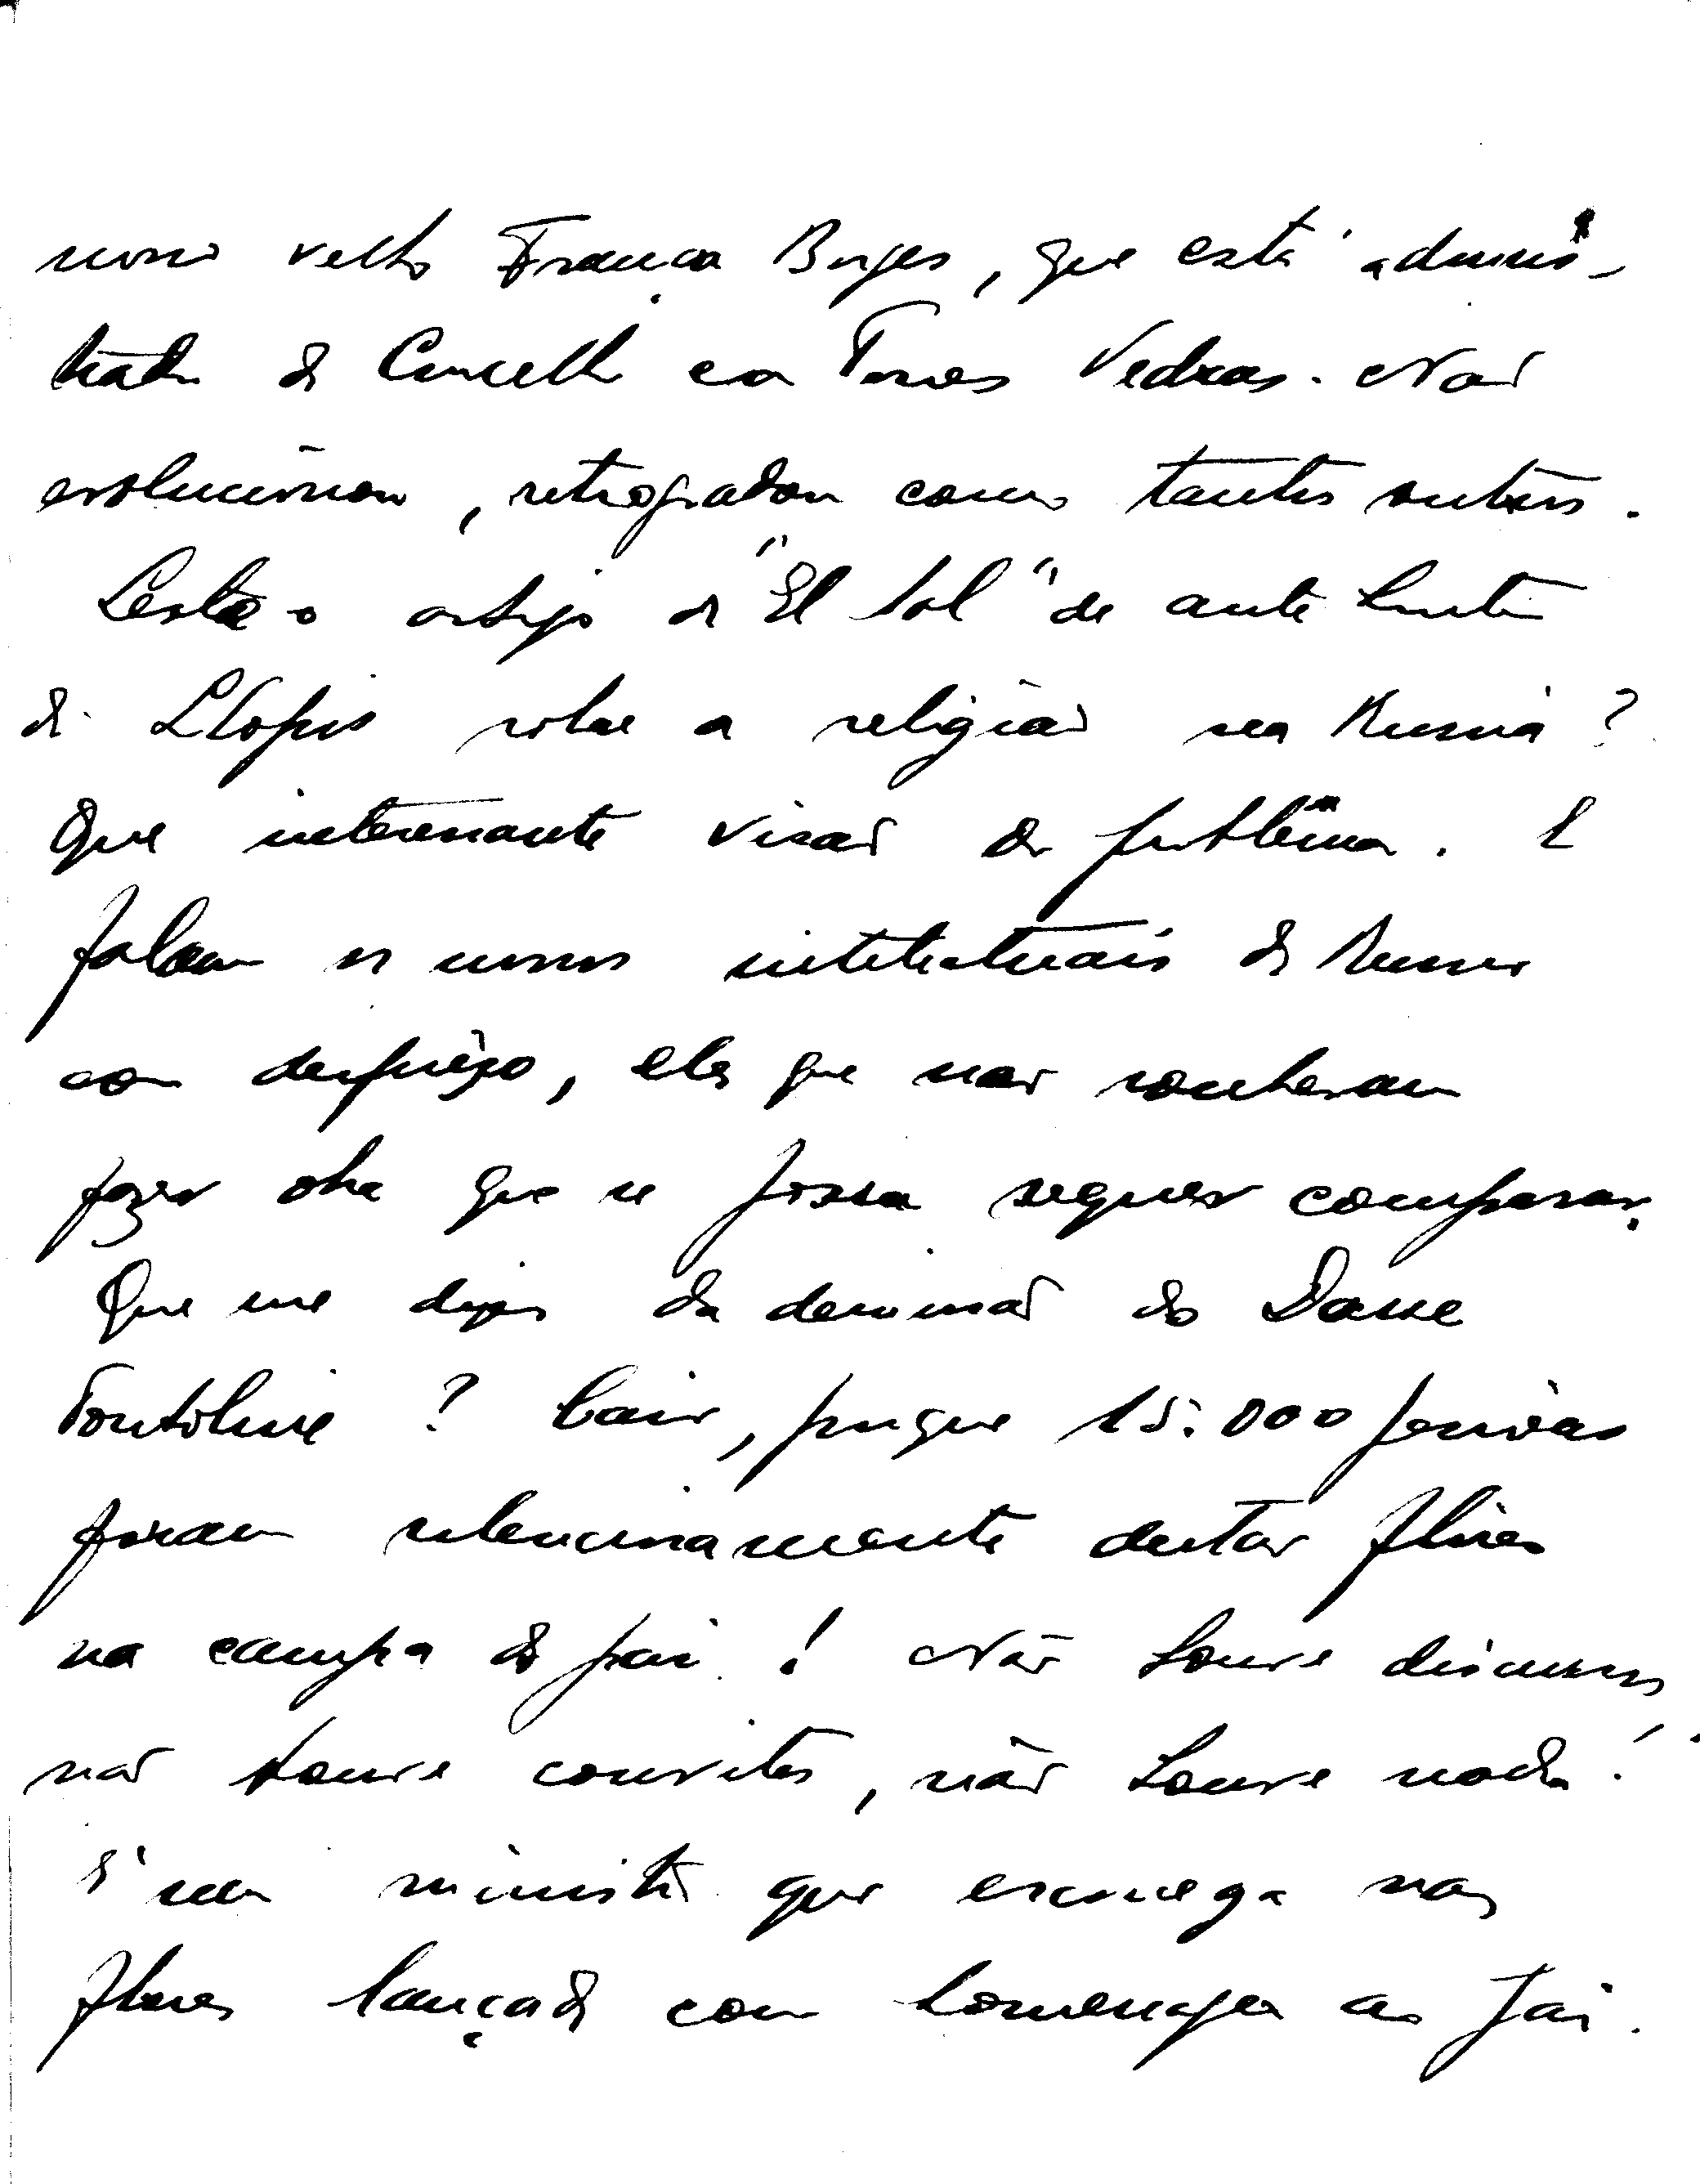 nosso velho França Borges, que está adminis-
trador do Concelho em Torres Vedras. Não
evolucionou, retrogradou como tantos outros.
Leste o artigo do "El Sol" de ante hontem
de Llopis sobre a religião na Russia?
Que interessante visão do problêma. E
falam os nossos intelectuais da Russia
com desprêso, eles que não souberam
fazer obra que se possa sequer comparar.
Que me dizes da demissão do Dasse
? Caiu, porque 15.000 pessôas
foram silenciosamente deitar flôres
na campa do pai! Não houve discursos,
não houve convites, não houve nada!
É um ministro que escorrega nas
flores lançadas com homenagem ao Pai.